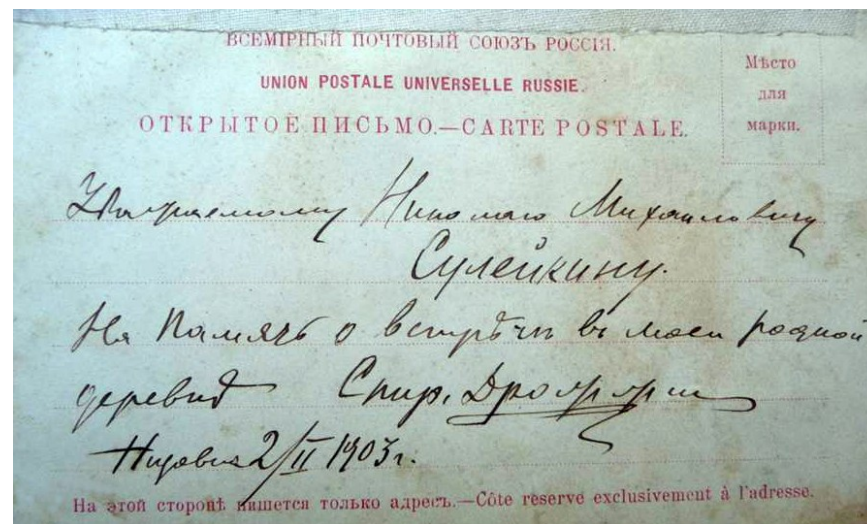 ВСЕМІРНЫЙ ПОЧТОВЫЙ СОЮЗЪ РОССІЯ.
UNION POSTALE UNIVERSELLE RUSSIE.
ОТКРЫТОЕ ПИСЬМО.—CARTE POSTALE.
Мѣсто
для
марки.
Уважаемому Николаю Михайловичу
Сулейкину.
На память о встрѣчѣ въ моей родной
деревнѣ Спир. Дрожжин
Низовка 2/II 1903 г.
На этой сторонѣ пишется только адресъ.—Côte reserve exclusivement à l'adresse.